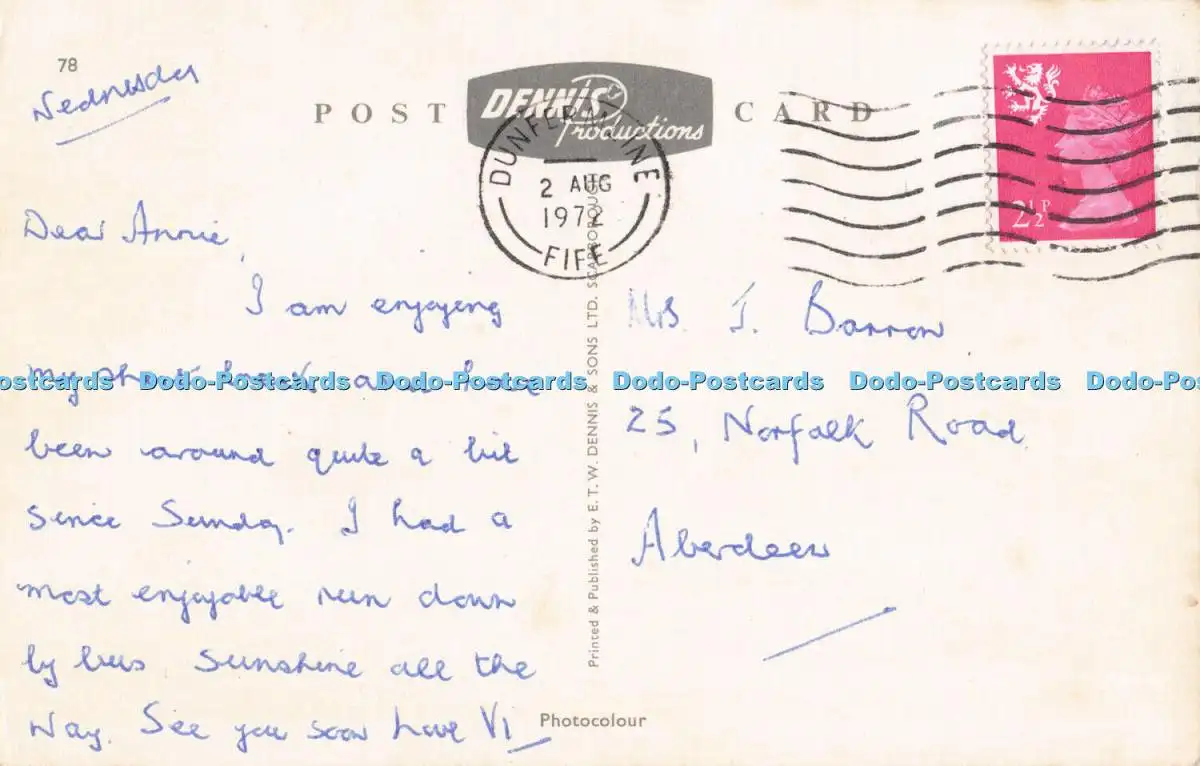 78
Wednesday
POST CARD
DENNIS
Productions
DUNFERMLINE
2 AUG
1972
FIFE
2½P
Dear Annie,
I am enjoying
my short break and have
been around quite a bit
since Sunday. I had a
most enjoyable run down
by bus sunshine all the
way. See you soon love Vi
Mrs. J. Barron
25, Norfolk Road
Aberdeen
Printed & Published by E. T. W. DENNIS & SONS LTD. SCARBOROUGH
Photocolour
Dodo-Postcards Dodo-Postcards Dodo-Postcards Dodo-Postcards Dodo-Postcards